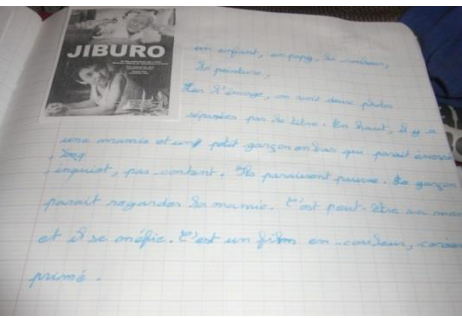 JIBURO
un enfant, un papy, la couleur,
la peinture,
Sur l'image, on voit deux photos
séparées par le titre. En haut, il y a
une mamie et un petit garçon en bas qui parait
inquiet, pas content. Ils paraissent pauvres. Le garçon
parait regarder la mamie. C'est peut-être sa
et il se méfie. C'est un film en couleur, coréen
primé.